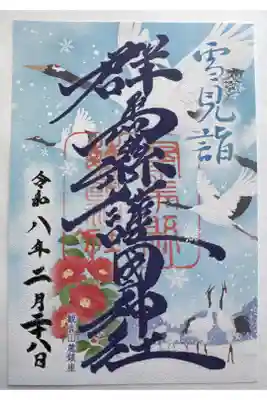 雪見詣
群馬縣護國神社
令和八年二月二十八日